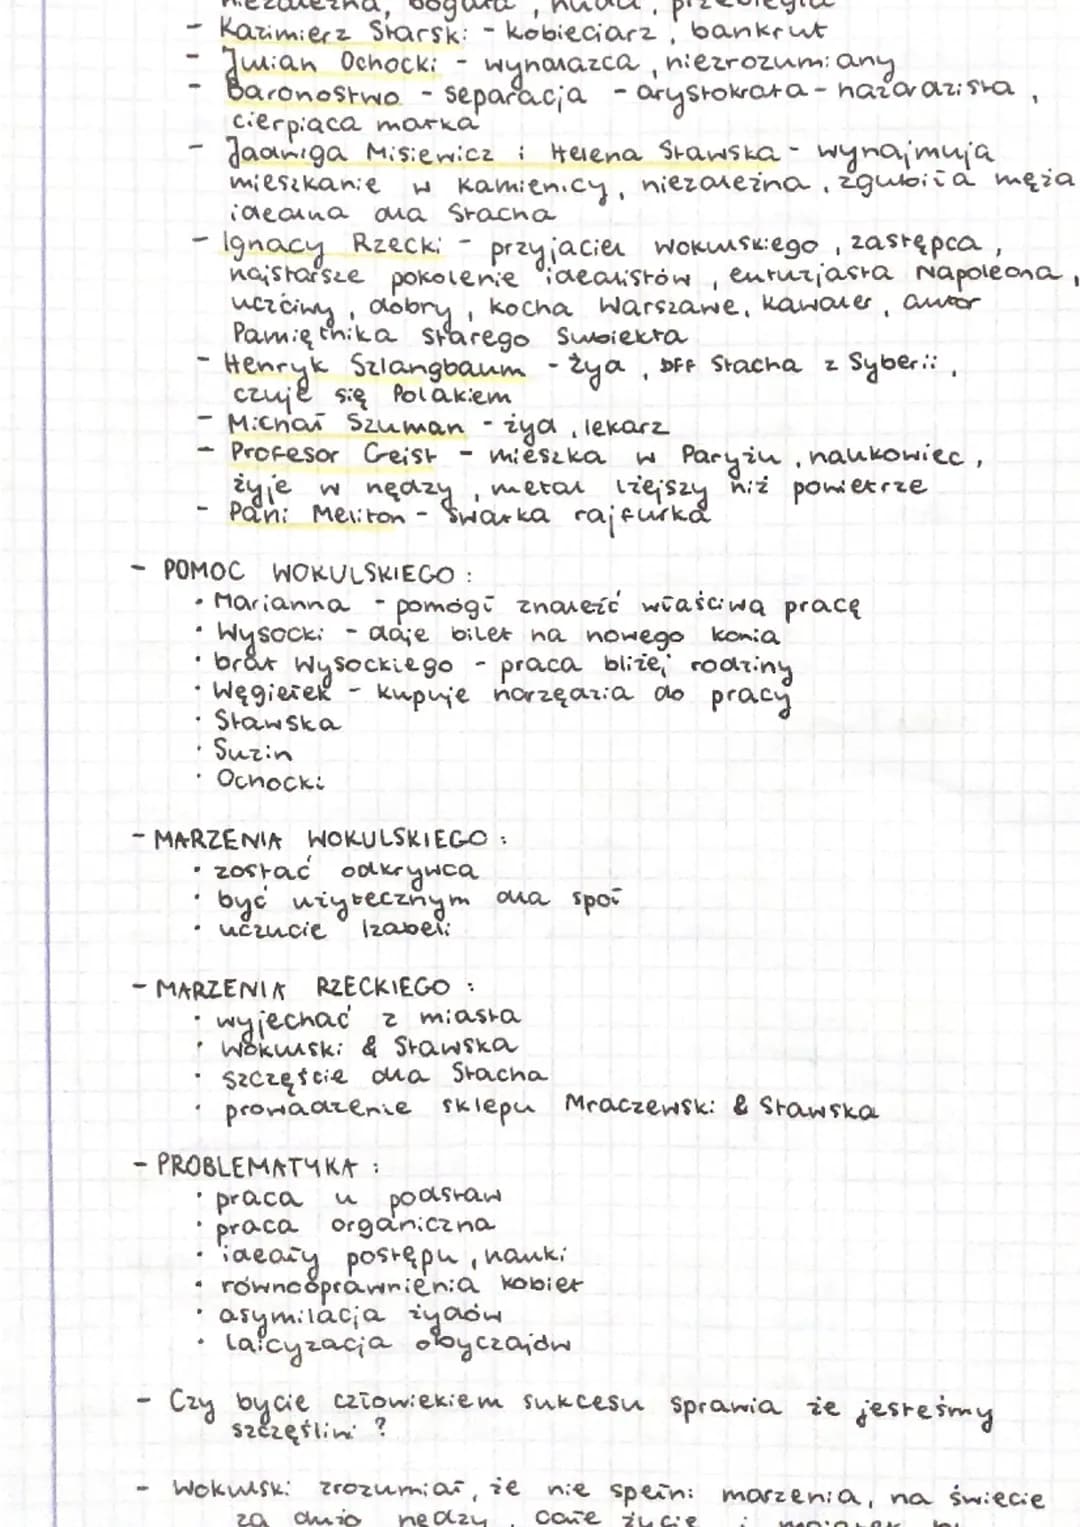 niezależna, bogata, nudu, przebiegła
- Kazimierz Starski - kobieciarz, bankrut
- Julian Ochocki - wynalazca, niezrozumiany
- Baronostwo - separacja - arystokrata - hazardzista,
cierpiąca matka
- Jadwiga Misiewicz i Helena Stawska - wynajmują
mieszkanie w kamienicy, niezależna, zgubiła męża
idealna dla Stacha
- Ignacy Rzecki - przyjaciel Wokulskiego, zastępca,
najstarsze pokolenie idealistów, entuzjasta Napoleona,
uczciwy, dobry, kocha Warszawę, kawaler, autor
Pamiętnika starego Subiekta
- Henryk Szlangbaum - żyd, BFF Stacha z Syberii,
czuje się Polakiem
- Michał Szuman - żyd, lekarz
- Profesor Geist - mieszka w Paryżu, naukowiec,
żyje w nędzy, metal lżejszy niż powietrze
- Pani Meliton - swatka rajfurka
- POMOC WOKULSKIEGO:
• Marianna - pomógł znaleźć właściwą pracę
• Wysocki - daje bilet na nowego konia
• brat Wysockiego - praca bliżej rodziny
• Węgiełek - kupuje narzędzia do pracy
• Stawska
• Suzin
• Ochocki
- MARZENIA WOKULSKIEGO:
• zostać odkrywcą
• być użytecznym dla społ
• uczucie Izabeli
- MARZENIA RZECKIEGO:
• wyjechać z miasta
• Wokulski & Stawska
• szczęście dla Stacha
• prowadzenie sklepu Mraczewski & Stawska
- PROBLEMATYKA:
• praca u podstaw
• praca organiczna
• ideały postępu, nauki
• równouprawnienia kobiet
• asymilacja żydów
• laicyzacja obyczajów
- Czy bycie człowiekiem sukcesu sprawia że jesteśmy
szczęśliwi?
- Wokulski zrozumiał, że nie spełni marzenia, na świecie
za dużo nędzy, całe życie i majątek